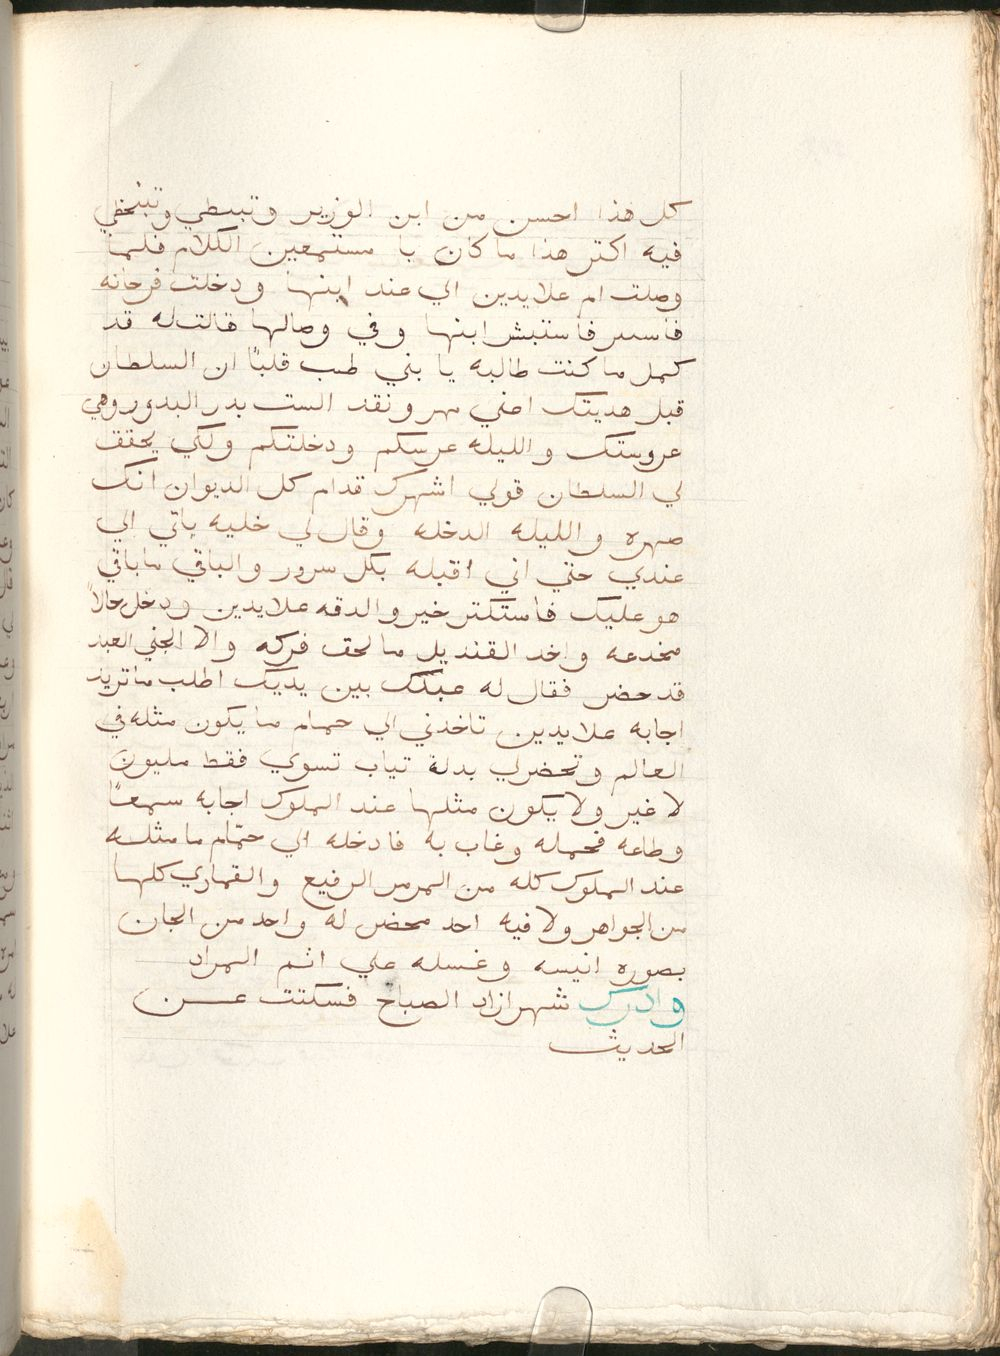 كل هذا احسن من ابن الوزير وتبسطي وتبنحظي
فيه اكتر هذا ما كان يا مستمعين الكلام فلما
وصلت ام علايدين الي عند ابنها ودخلت فرحانه
فاستبش ابنها وفي وصالها قالت له قد
كمل ما كنت طالبه يا بني طب قلبًا ان السلطان
قبل هديتك اعني مهر ونقد الست بدر البدور وهي
عروستك والليله عرسكم ودخلتكم ولكي يحقق
لي السلطان قولي اشهرك قدام كل الديوان انك
صهره والليله الدخله وقال لي خليه ياتي الي
عندي حتي اني اقبله بكل سرور والباقي ما باقي
هو عليك فاستكتر خير والدته علايدين ودخل حالاً
مخدعه واخد القنديل ما لحق فركه والا الجني العبد
قد حضر فقال له عبدك بين يديك اطلب ما تريد
اجابه علايدين تاخدني الي حمام ما يكون مثله في
العالم وتحضرلي بدلة تياب تسوي فقط مليون
لا غير ولا يكون مثلها عند الملوك اجابه سمعًا
وطاعه فحمله وغاب به فادخله الي حمّام ما مثله
عند الملوك كله من المرمر الرفيع والقماري كلها
من الجواهر ولا فيه احد محضر له واحد من الجان
بصوره انيسه وغسله علي اتم المراد
وادرك شهرازاد الصباح فسكتت عن
الحديث